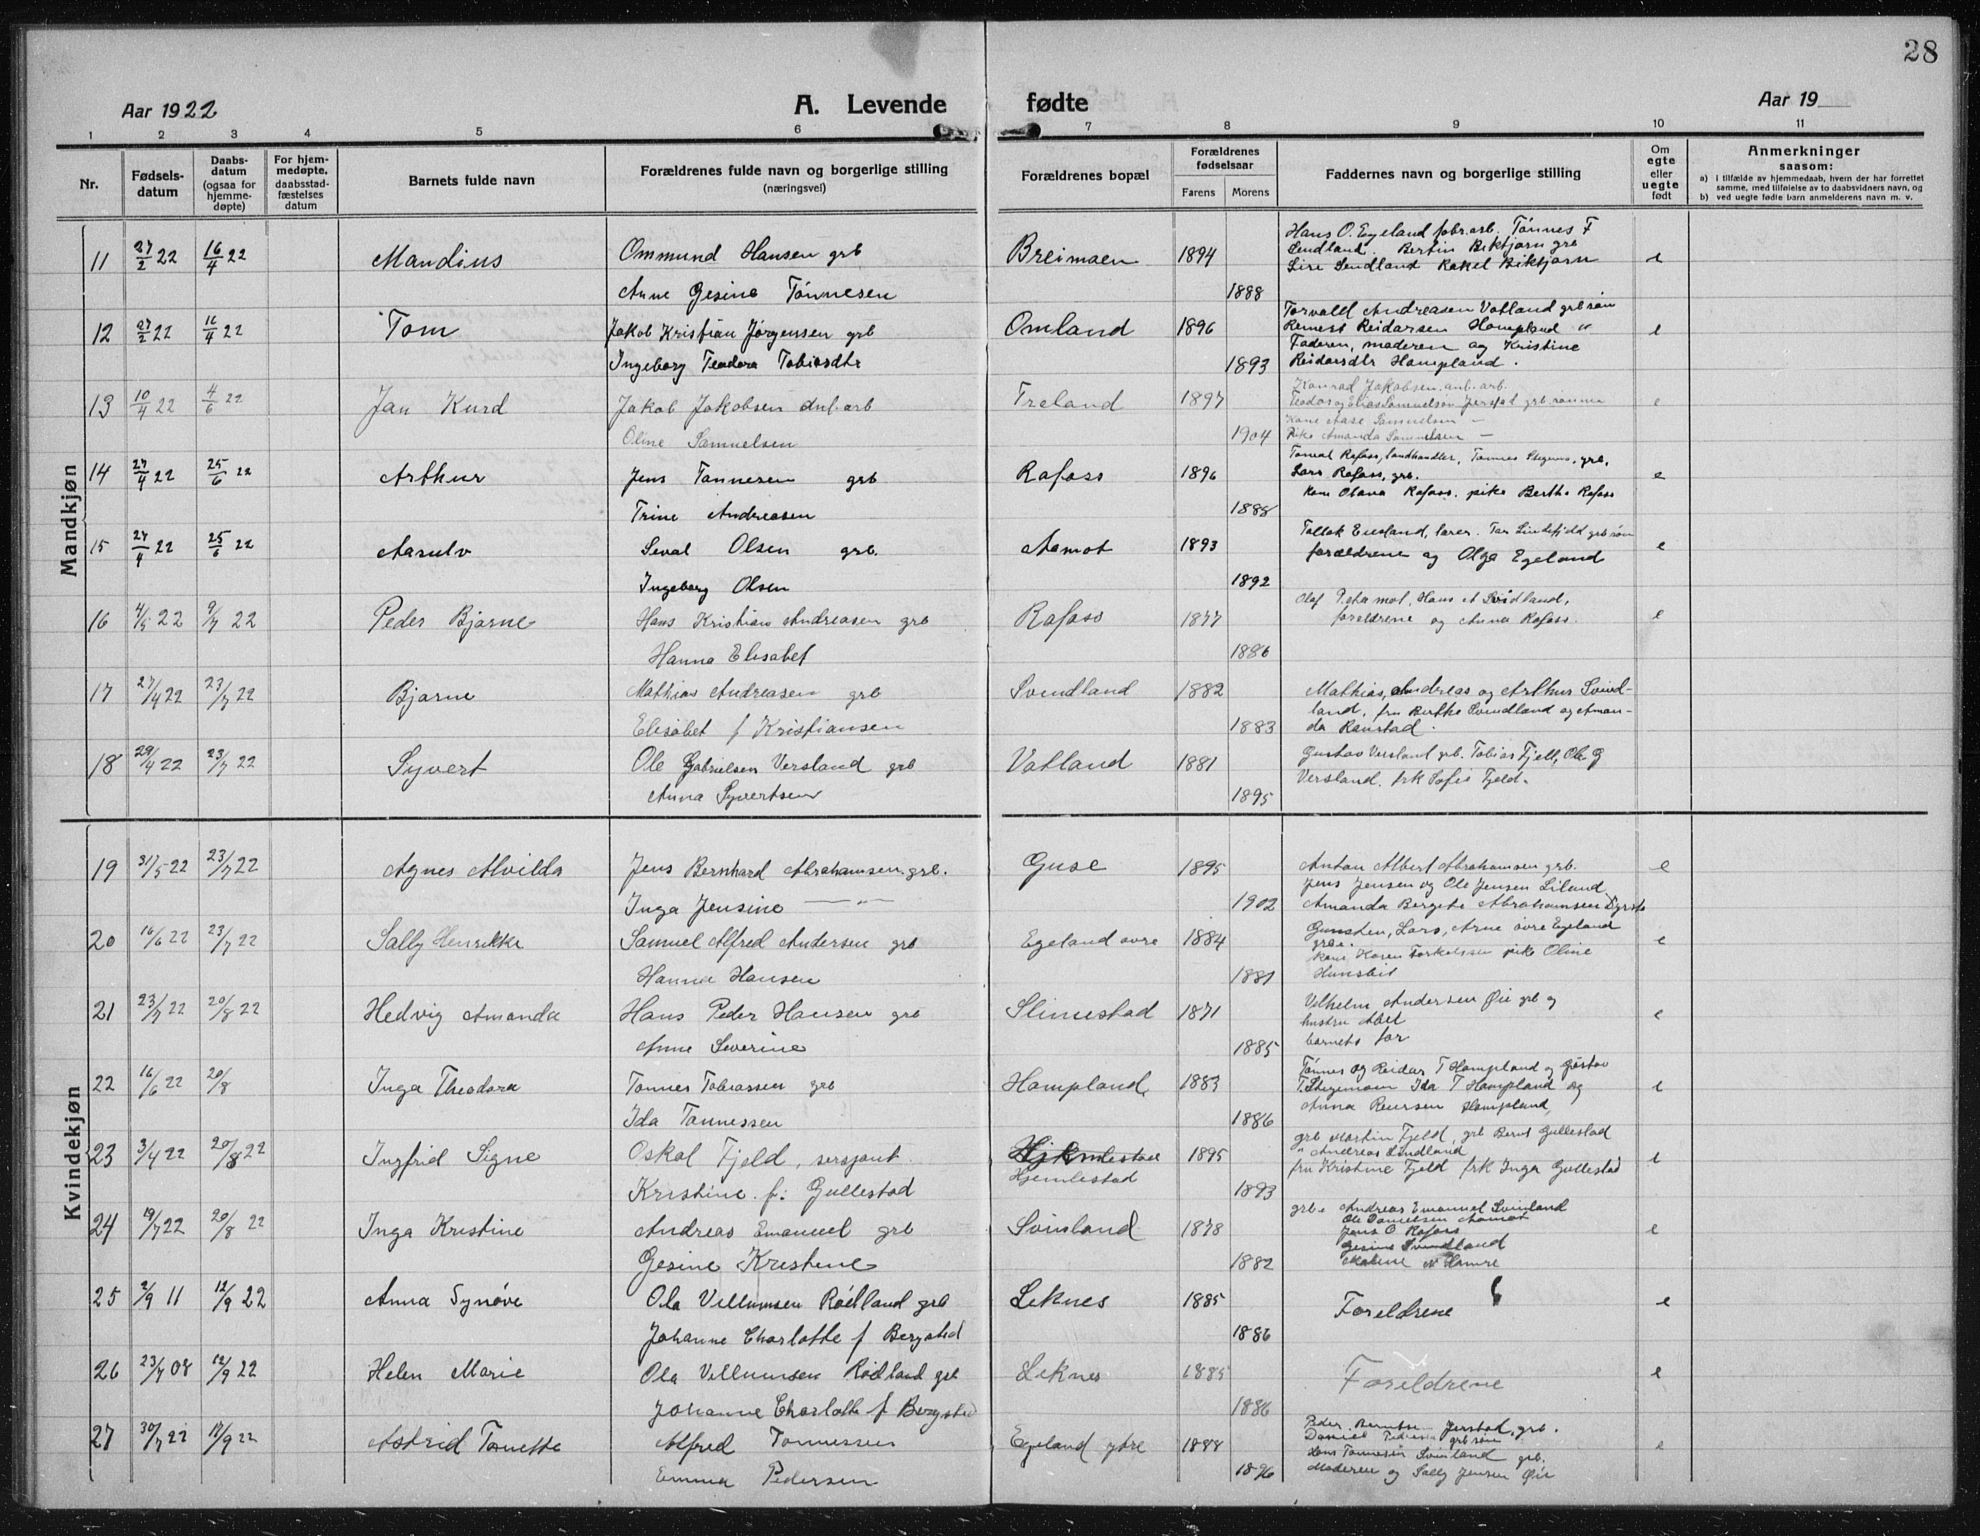 28
Aar 1922
A. Levende fødte
Aar 19
1 2 3 4 5 6 7 8 9 10 11
Nr.
Fødsels-
datum
Daabs-
datum
(ogsaa for
hjemme-
døpte)
For hjem-
medøpte,
daabsstad-
fæstelses
datum
Barnets fulde navn
Forældrenes fulde navn og borgerlige stilling
(næringsvei)
Forældrenes bopæl
Forældrenes
fødselsaar
Farens Morens
Faddernes navn og borgerlige stilling
Om
egte
eller
uegte
født
Anmerkninger
saasom:
a) i tilfælde av hjemmedaab, hvem der har forrettet
samme, med tilføielse av to daabsvidners navn, og
b) ved uegte fødte barn anmelderens navn m. v.
Mandkjøn
11 27/2 22 16/4 22 Mandius Ommund Hansen grb Breimoen 1894 e
Anne Gesine Tønnesen 1888
Hans O. Egeland fabr.arb. Tønnes F
Sendland Bertin Birktjørn grb
Sire Sendland Rakel Birktjørn
12 27/2 22 16/4 22 Tom Jakob Kristian Jørgensen grb Omland 1896 e
Ingeborg Teodora Tobiasdtr 1893
Torvald Andreasen Vatland grb søn
Rernert Reidarsen Hompland "
Faderen, moderen og Kristine
Reidarsdtr Hompland.
13 10/4 22 4/6 22 Jan Kurd Jakob Jakobsen anl.arb Treland 1897 e
Oline Samuelsen 1904
Konrad Jakobsen anl. arb.
Teodor og Elias Samuelsen Jerstad grb sønner
Kone Aase Samuelsen -
Pike Amanda Samuelsen -
14 27/4 22 25/6 22 Arthur Jens Tønnesen grb Rafoss 1896 e
Trine Andreasen 1888
Tomal Rafoss, landhandler, Tønnes Stegemo, grb,
Lars Rafoss, grb.
kone Olava Rafoss. pike Berthe Rafoss
15 27/4 22 25/6 22 Aanulv Seval Olsen grb. Aamot 1893 e
Ingeborg Olsen 1892
Tallak Eiesland, lærer. Tar Lindefjeld grb søn
forældrene og Olga Egeland
16 4/5 22 9/7 22 Peder Bjarne Hans Kristian Andreasen grb Rafoss 1877 e
Hanna Elisabet 1886
Olaf Petamot, Hans A Svidland,
foreldrene og Anna Rafoss.
17 27/4 22 23/7 22 Bjarne Mathias Andreasen grb Svindland 1882
Elisabet f Kristiansen 1883
Mathias, Andreas og Arthur Svind-
land, fru Berthe Svindland og Aman-
da Raustad.
18 29/4 22 23/7 22 Syvert Ole Gabrielsen Versland grb Vatland 1881
Anna Syvertsen 1895
Gustav Versland grb. Tobias Fjell, Ole G
Versland. frk Sofie Fjeld.
Kvindekjøn
19 31/5 22 23/7 22 Agnes Alvilda Jens Bernhard Abrahamsen grb. Guse 1895 e
Inga Jensine —"— 1902
Anton Albert Abrahamsen grb.
Jens Jensen og Ole Jensen Liland
Amanda Bergete Abrahamsen
20 16/6 22 23/7 22 Sally Henrikke Samuel Alfred Andersen grb Egeland øvre 1884 e
Hanna Hansen 1881
Gunsten, Lars, Arne øvre Egeland
grb.
kone Karen Torkelssen pike Oline
Hunsbit
21 23/7 22 20/8 22 Hedvig Amanda Hans Peder Hansen grb Slimestad 1871 e
Anne Severine 1885
Vilhelm Andersen Øie grb og
hustru Abel
barnets far
22 16/6 22 20/8 Inga Theodora Tønnes Tobiassen grb Hompland 1883 e
Ida Tønnessen 1886
Tønnes og Reidar T Hompland og Gustav
T. Stegemoen Ida T Hompland og
Anna Reiersen Hompland,
23 3/4 22 20/8 22 Ingfrid Signe Oskal Fjeld, sersjant. Hjemlestad 1895 e
Kristine f. Gullestad 1893
grb Martin Fjeld, grb Bernt Gullestad
" Andreas Lindland
fru Kristine Fjeld frk Inga Gullestad
24 19/7 22 20/8 22 Inga Kristine Andreas Emanuel grb Svinland 1878 e
Gesine Kristine 1882
grb. Andreas Emanuel Svinland
Ole Danielsen Aamot
Jens O Rafoss
Gesine Svindland
Malene N Hamre
25 2/9 11 12/9 22 Anna Synøve Ola Villumsen Rødland grb Leknes 1885 e
Johanne Charlotte f Bergstad 1886
Foreldrene
26 23/7 08 12/9 22 Helen Marie Ola Villumsen Rødland grb Leknes 1885 e
Johanne Charlotte f Bergstad 1886
Foreldrene
27 30/7 22 17/9 22 Astrid Tonette Alfred Tønnessen Egeland ytre 1888 e
Emma Pedersen 1896
Peder Berntsen Jerstad, grb.
Daniel grb søn
Hans Tønnesen Svinland grb.
Moderen og Sally Jensen Øie